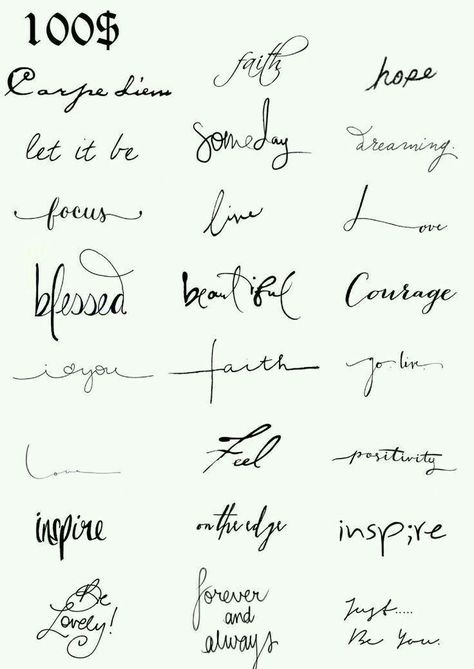 100$
Carpe diem
faith
hope
let it be
someday
dreaming.
focus
live
Love
blessed
beautiful
Courage
i ♡ you
faith
go. live.
Love
Feel
positivity
inspire
on the edge
insp;re
Be
Lovely!
forever
and
always
Just.....
Be You.